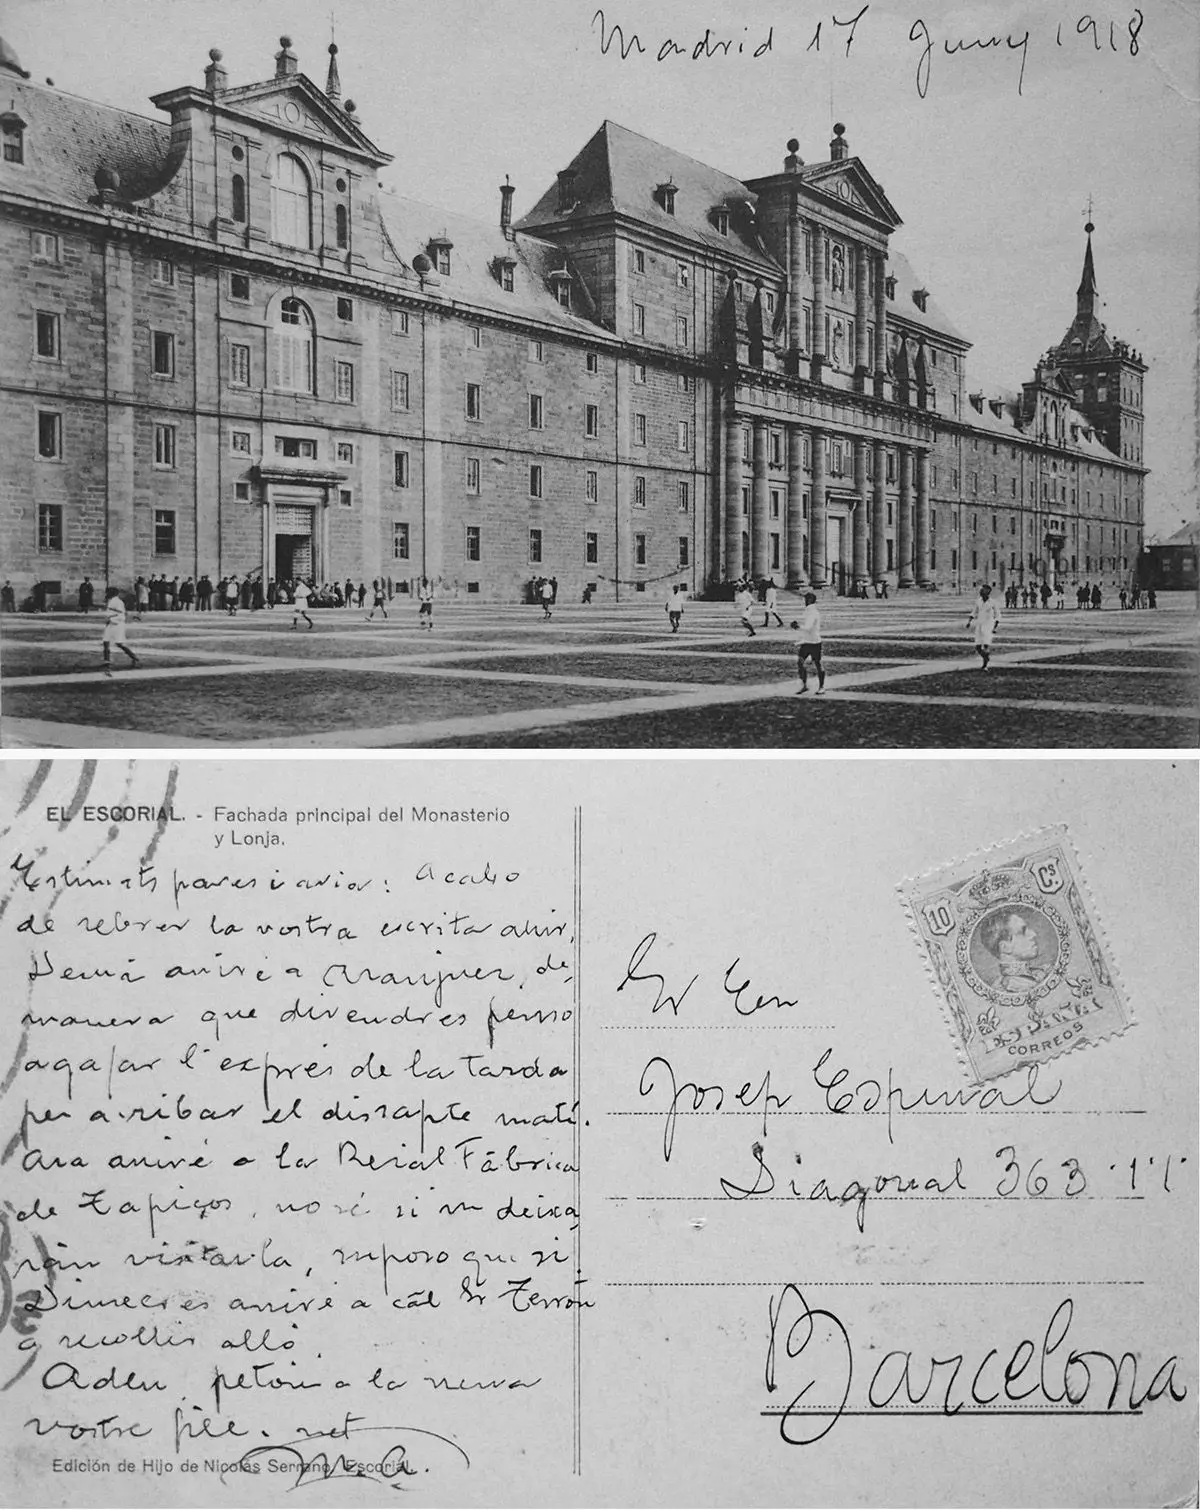 Madrid 17 Juny 1918
EL ESCORIAL. - Fachada principal del Monasterio
y Lonja.
Estimats pares i avia: Acabo
de rebrer la vostra escrita ahir,
Demá aniré a Aranjuez, de
manera que divendres penso
agafar l'exprés de la tarda
per arribar el dissapte matí.
Ara aniré a la Reial Fábrica
de Tapiços, no sé si m deixa
rán visitarla, suposo que si.
Dimecres aniré a cál Sr Terrón
a recollir alló.
Adeu, petons a la nena
vostre fill. net
M. A.
Edición de Hijo de Nicolás Serrano, Escorial.
10 Cs.
CORREOS
Sr En
Josep Espinal
Diagonal 363 · 1ᵉʳ
Barcelona